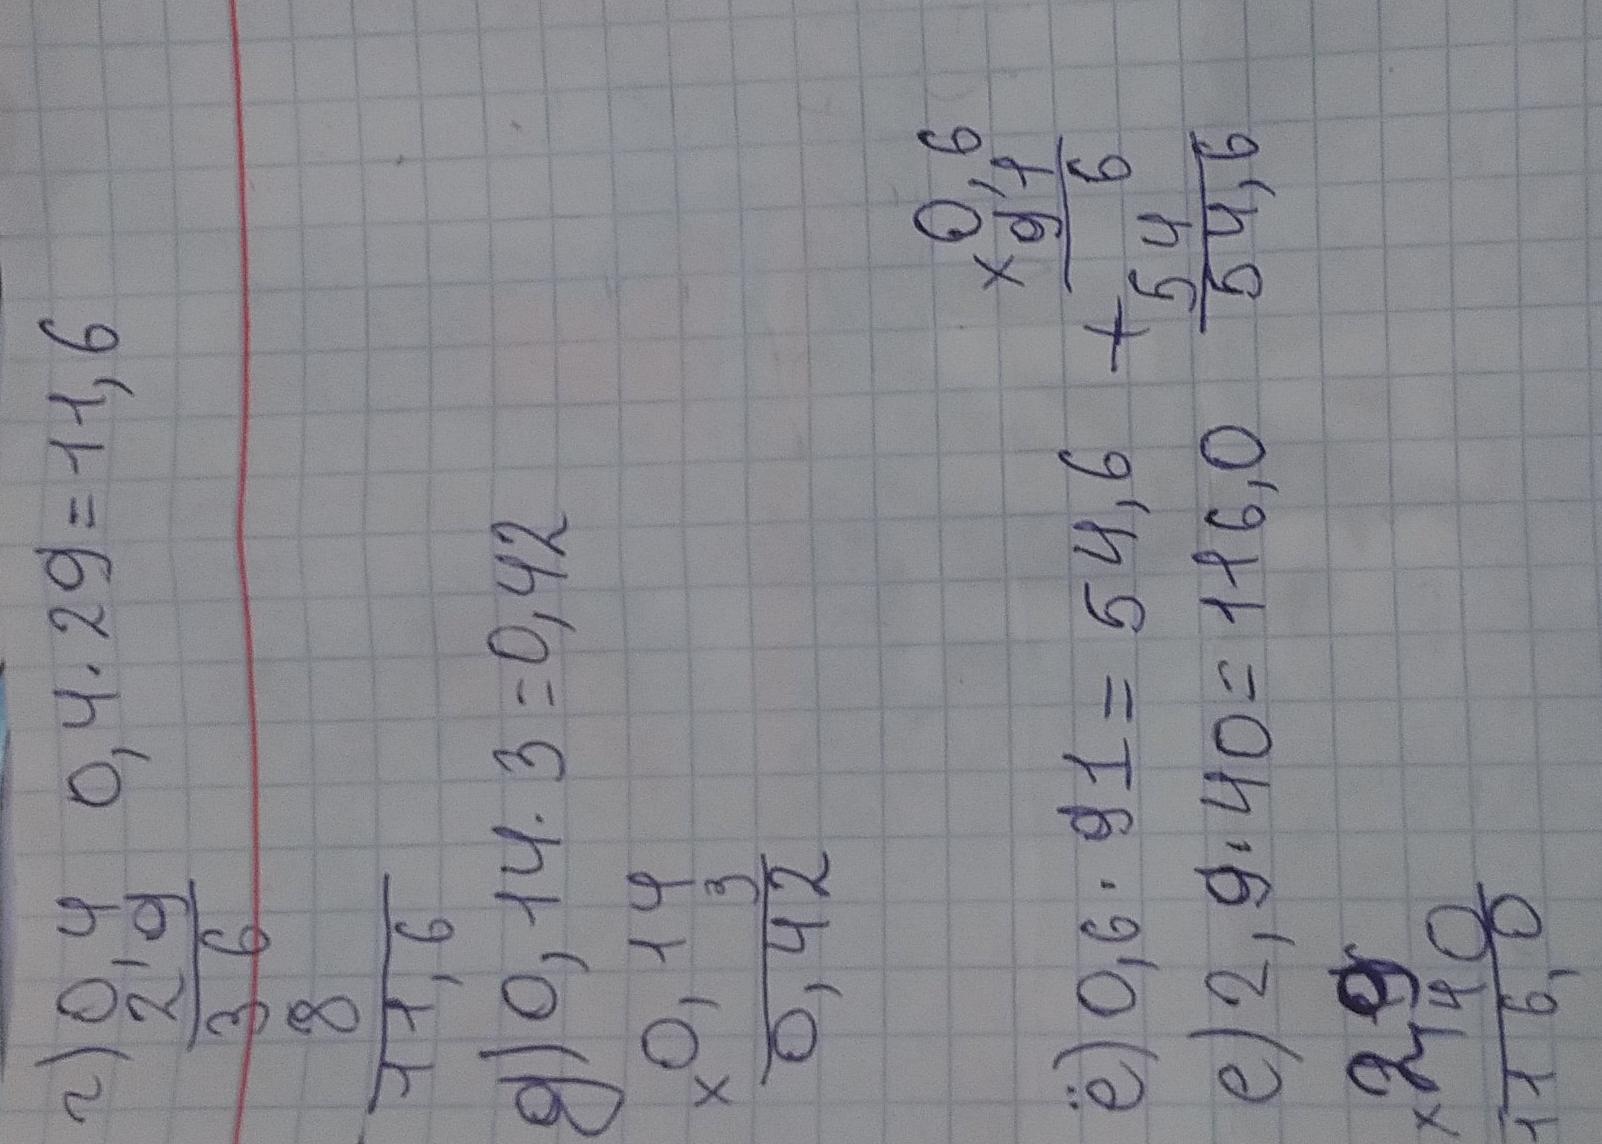 г) 0,4 0,4·29=11,6
2,9
36
8
11,6
д) 0,14·3=0,42
× 0,14
3
0,42
0,6
× 9,1
ё) 0,6·91=54,6 + 6
54
е) 2,9·40=116,0 54,6
× 2,9
40
116,0